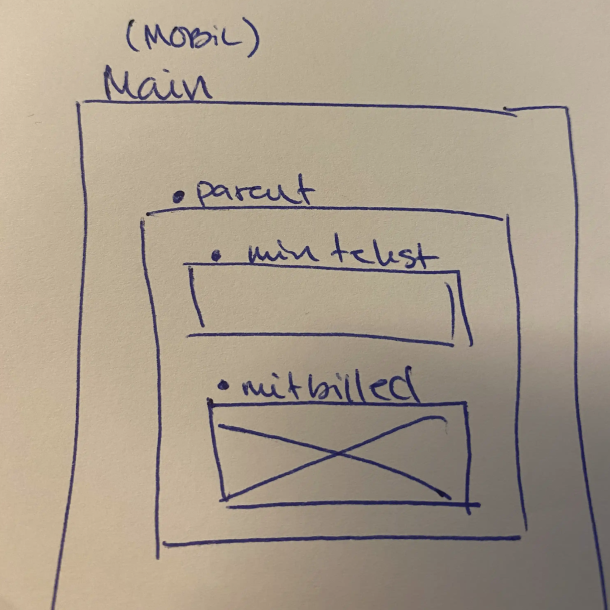 (MOBIL)
Main
• parent
• min tekst
• mit billed